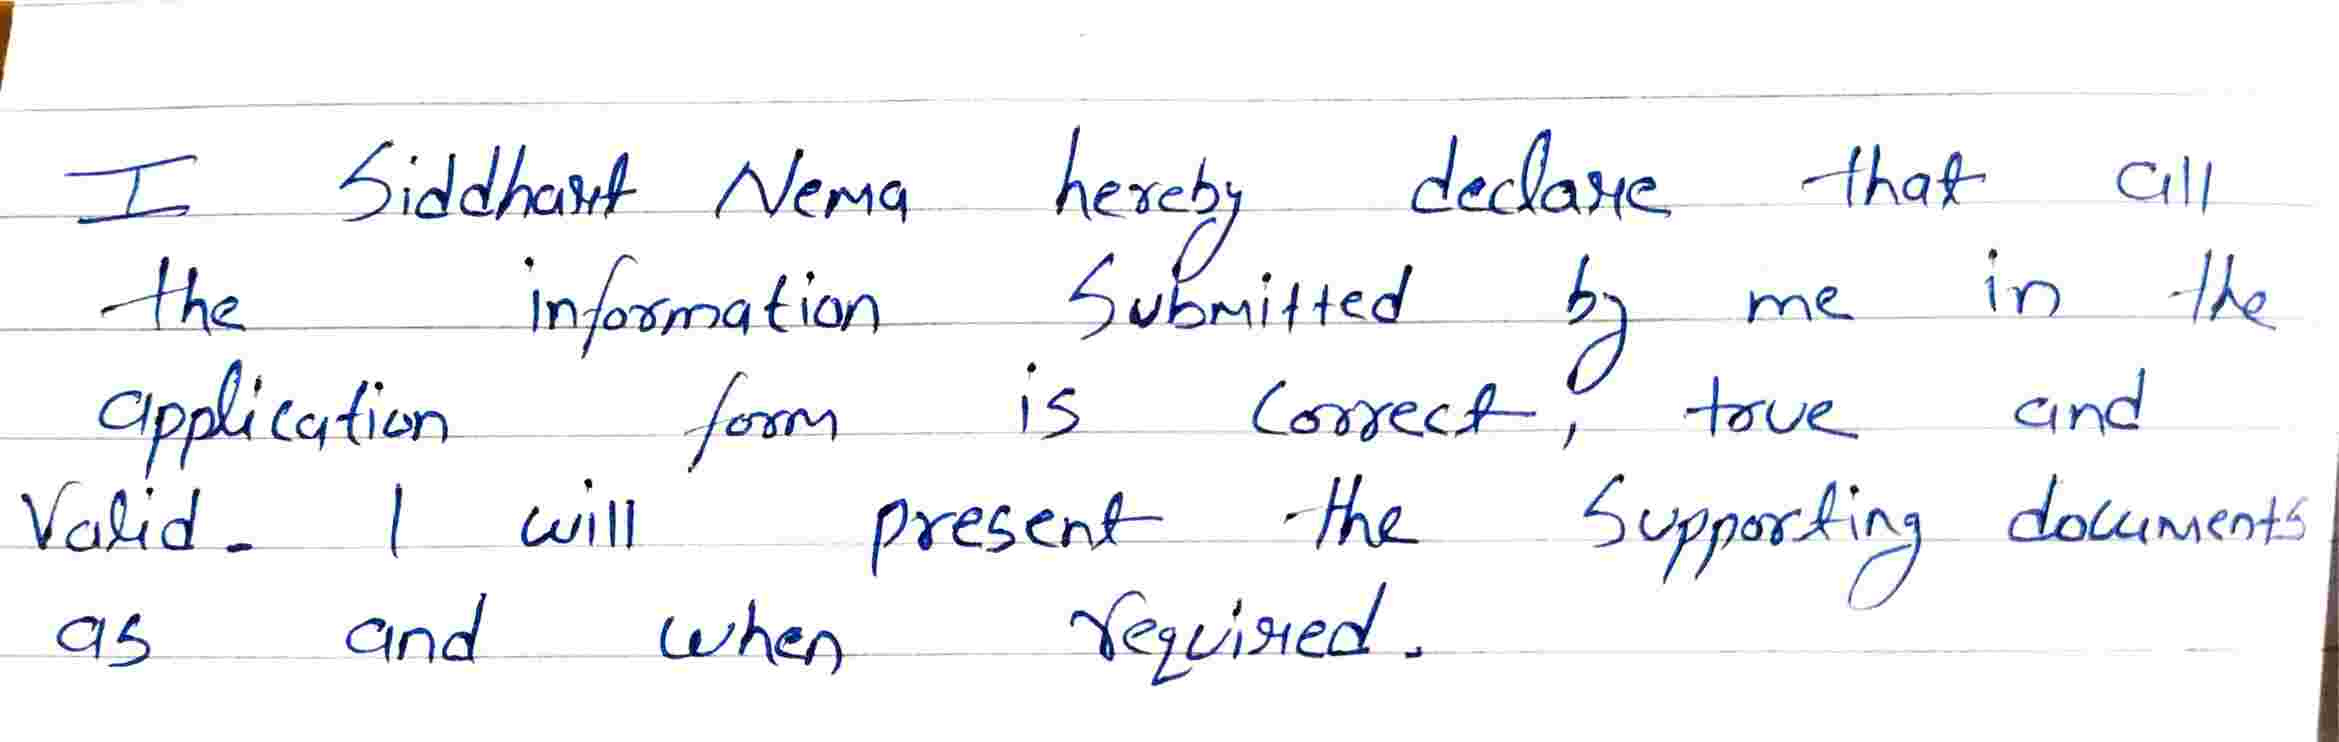 I Siddhart Nema hereby declare that all
the information Submitted by me in the
application form is Correct, true and
Valid. I will present the Supporting documents
as and when required.